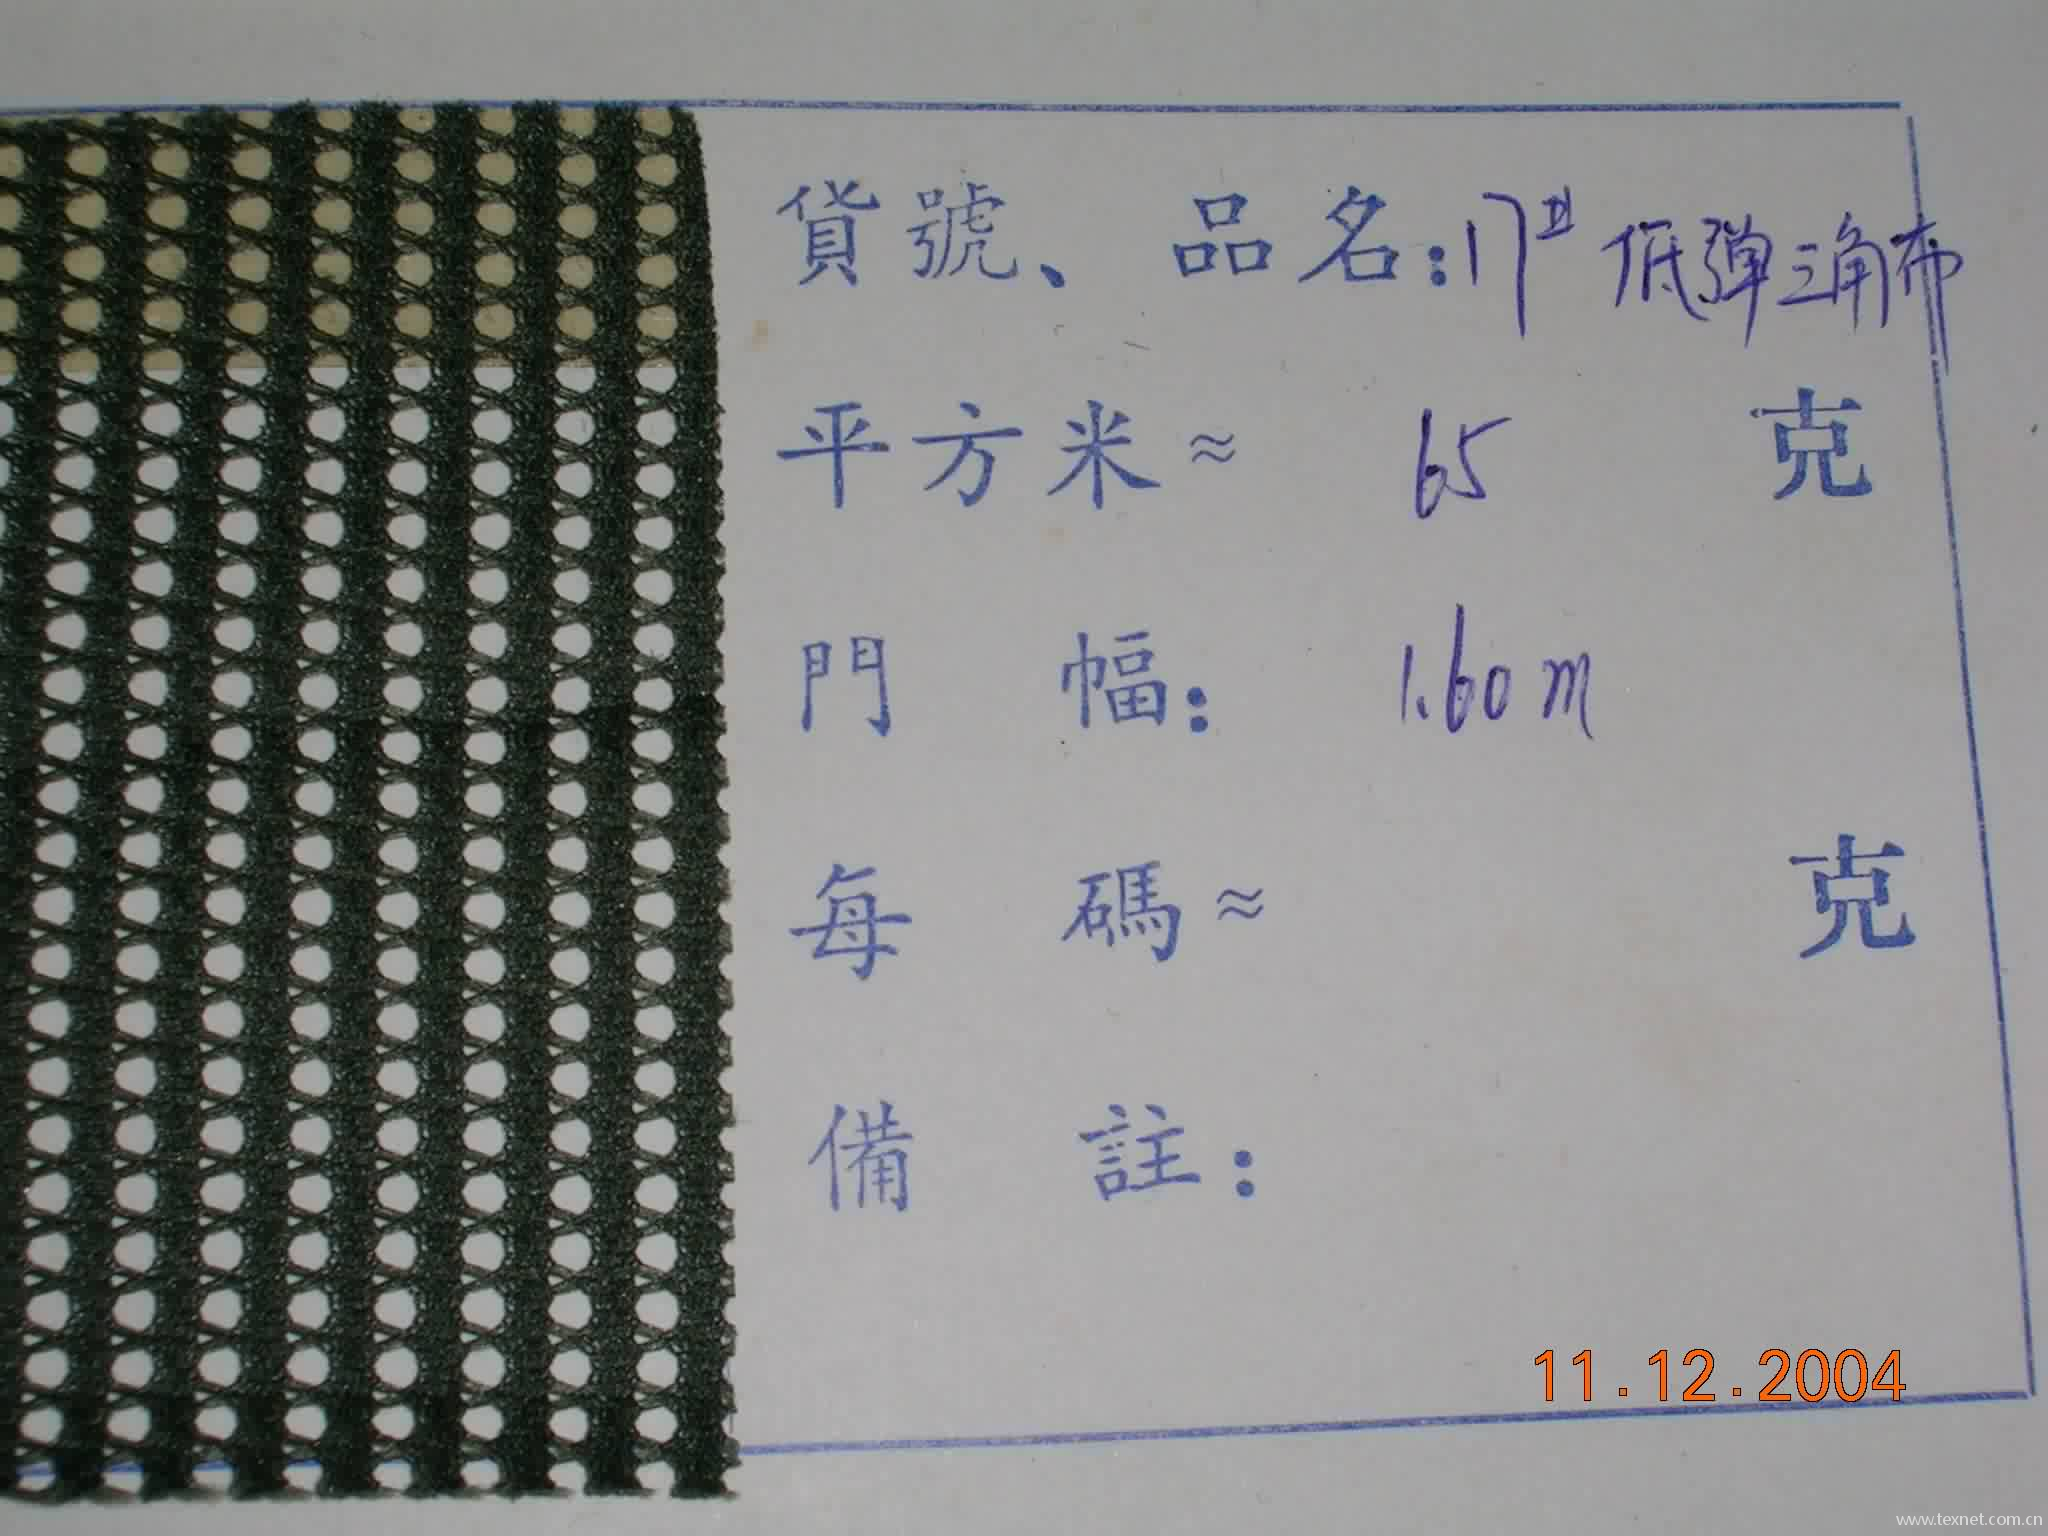 貨號、品名:17# 低弹三角布
平方米≈ 65 克
門幅: 1.60m
每碼≈ 克
備註:
11.12.2004
www.texnet.com.cn